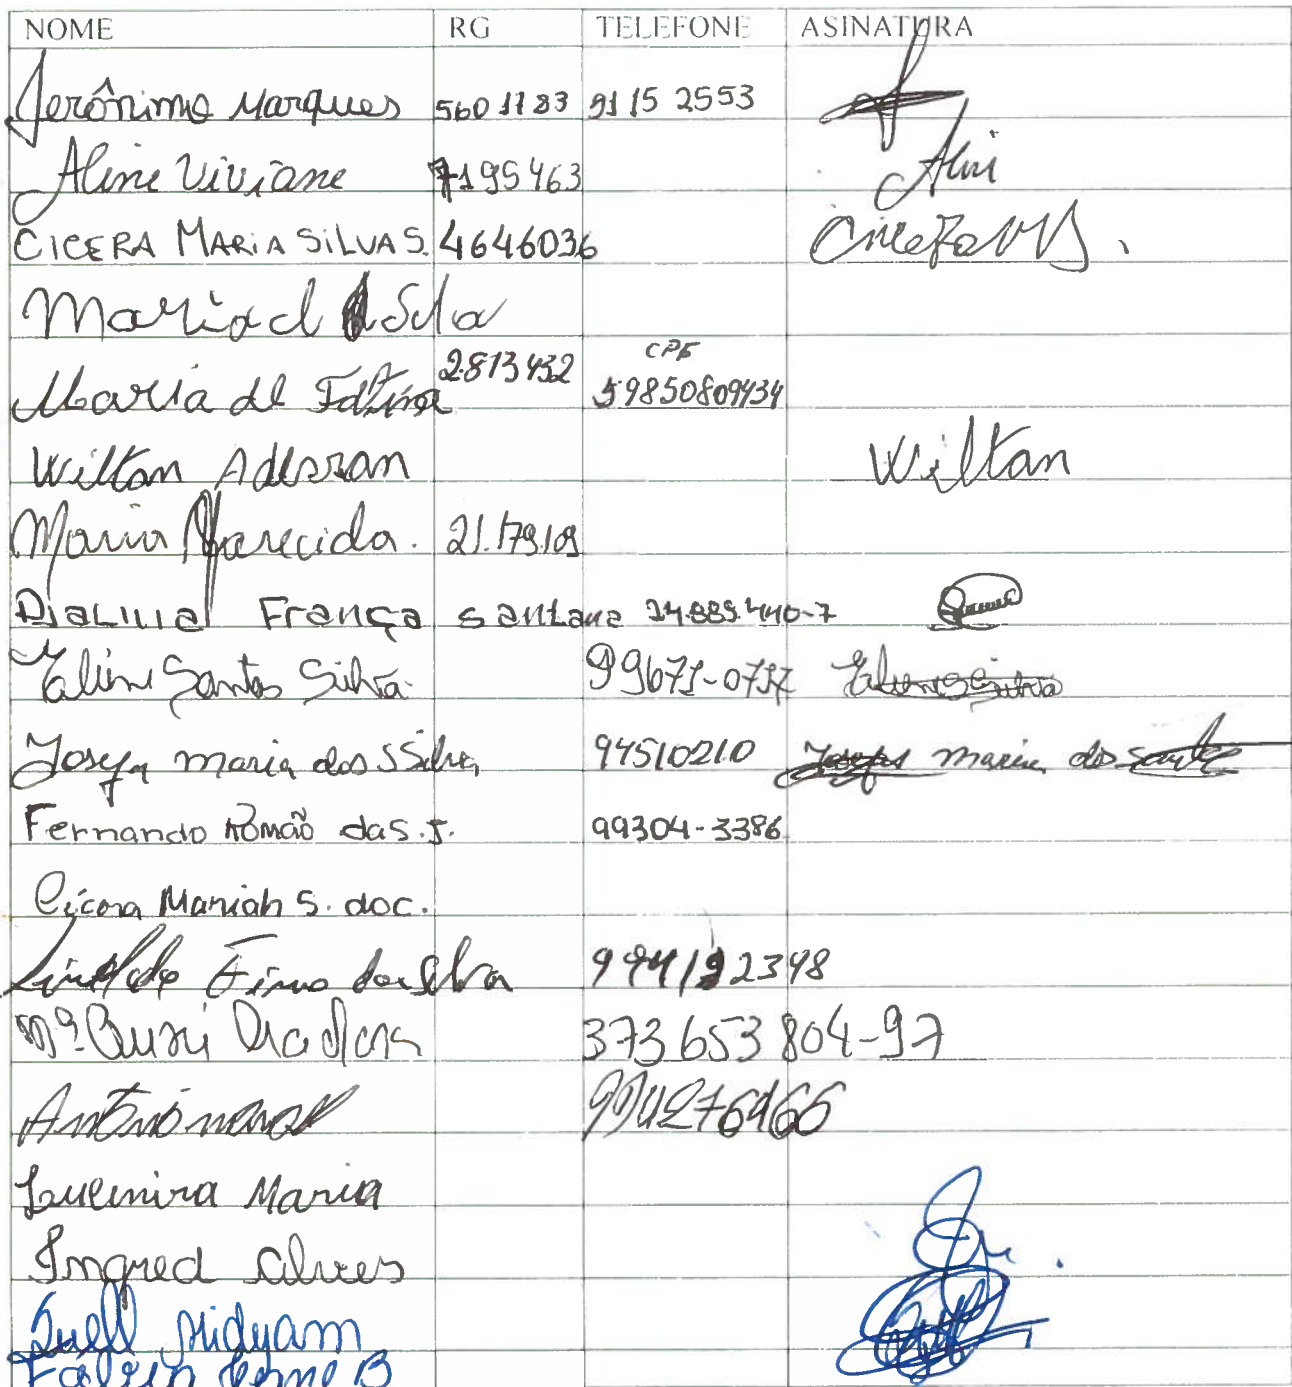 NOME RG TELEFONE ASINATURA
Jerônimo Marques 5601783 9115 2553
Aline Viviane 7195463 Alini
CICERA MARIA SILVA S. 4646036
Maria d Silva
CPF
Maria de Fátima 2.813432 59850809434
Wiltan Aderran Wiltan
Maria Aparecida. 21.179.109
Djalma França santana 24.889.440-7
Eliene Santos Silva 99671-0737 Eliene S Silva
Josefa maria dos S Silva 94510210 Josefa maria do Santos
Fernando Romão da S. J. 99304-3386
Cícera Mariah S. doc.
Firmo da Silva 994192348
Mª 373 653 804-97
Antônio 994276466
Lucinira Maria
Ingred Alves
Suell Midyam